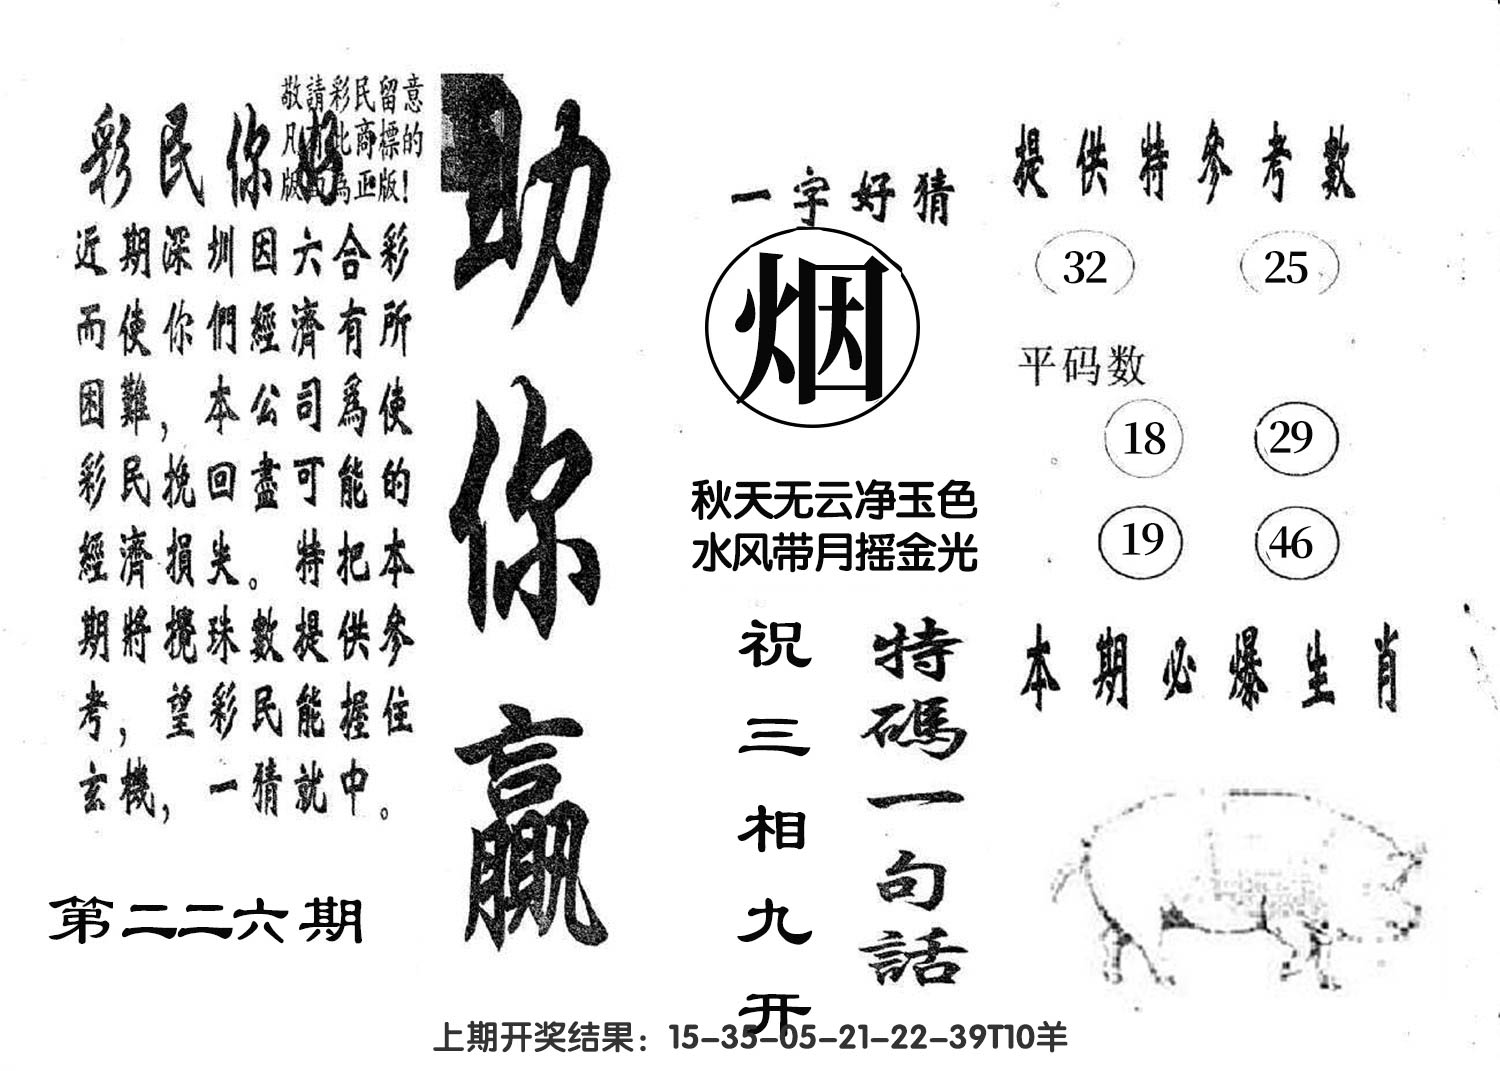 敬請彩民留意
凡有此商標的
版面為正版!
彩民你好
近期深圳因六合彩
而使你們經濟有所
困難，本公司爲使
彩民挽回盡可能的
經濟損失。特把本
期將攪珠數提供參
考，望彩民能握住
玄機，一猜就中。
第二二六期
助你贏
一字好猜
烟
秋天无云净玉色
水风带月摇金光
特碼一句話
祝三相九开
提供特參考數
32 25
平码数
18 29
19 46
本期必爆生肖
上期开奖结果：15-35-05-21-22-39T10羊